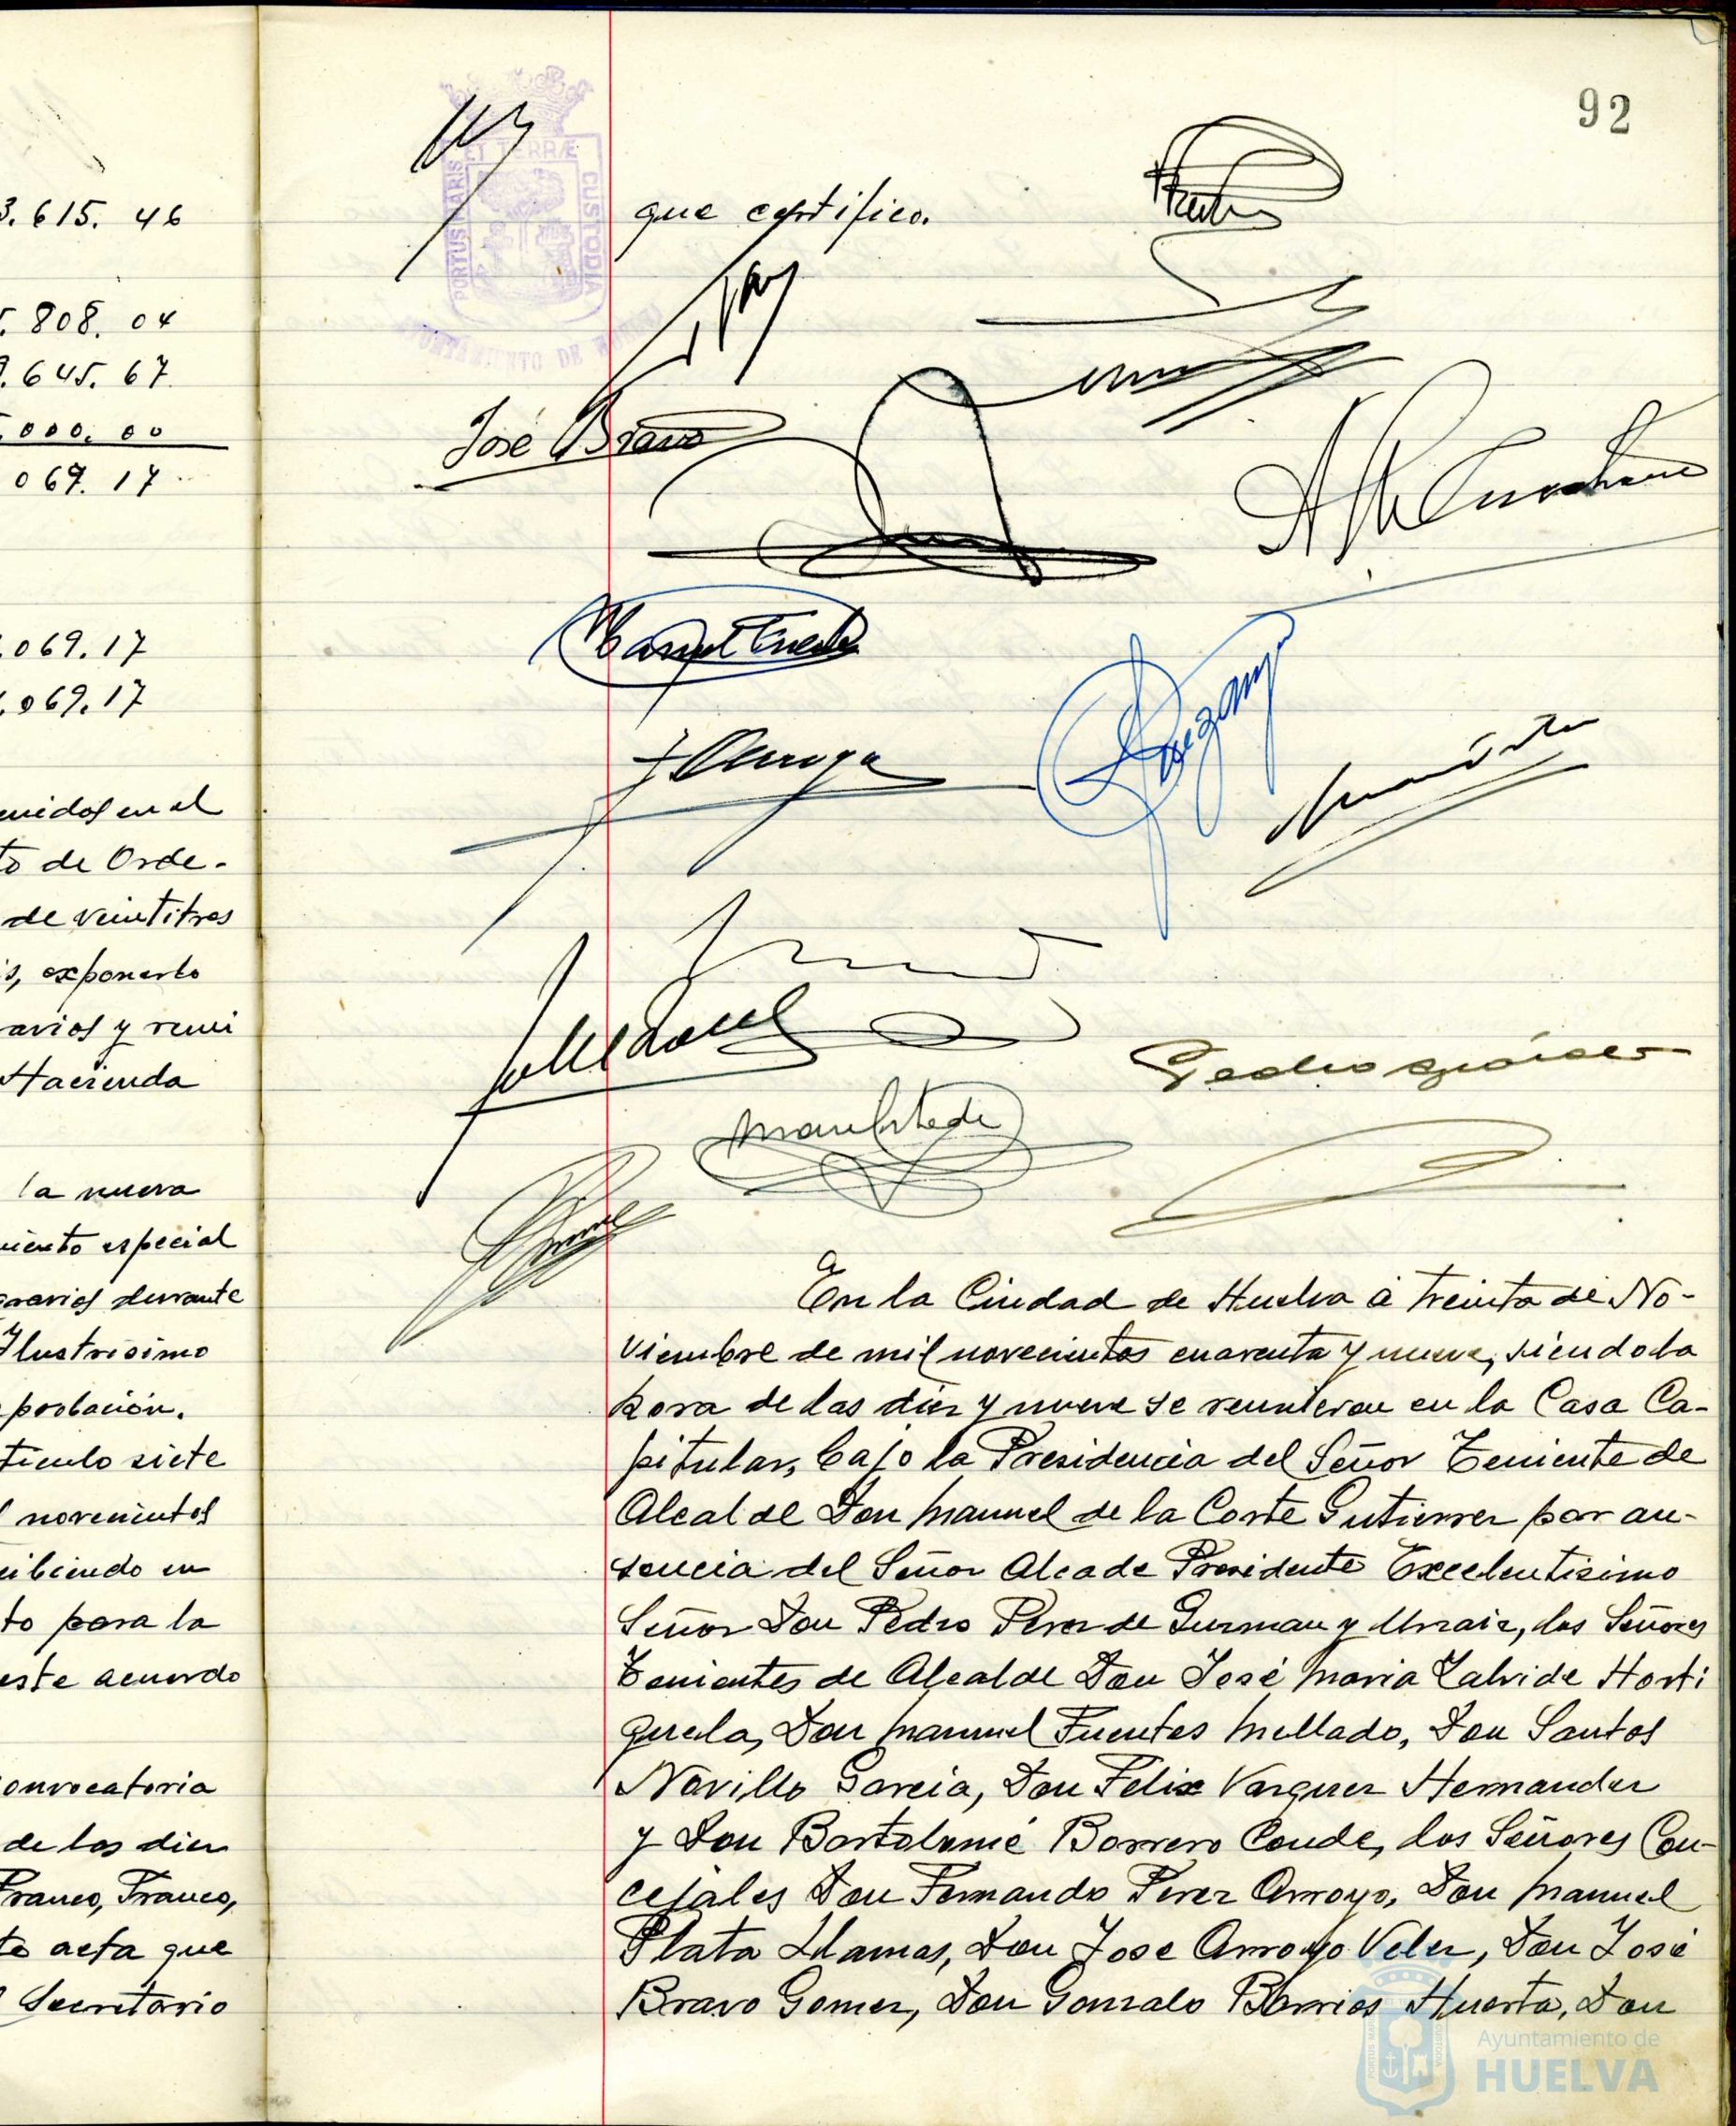 3.615.46
808.04
.645.67
.000,00
069.17
.069.17
.069.17
unidos en el
to de Orde-
de veintitres
s, exponerlo
arios y remi
Hacienda
la nueva
miento especial
durante
Ilustrisimo
poblacion.
ticulo siete
novecientos
cibiendo en
to para la
este acuerdo
onvocatoria
de las diez
Franco, Franco,
te acta que
Secretario
92
PORTUS MARIS ET TERRÆ CUSTODIA
AYUNTAMIENTO DE HUELVA
que certifico.
José Bravo
En la Ciudad de Huelva á treinta de No-
viembre de mil novecientos cuarenta y nueve, siendo la
hora de las diez y nueve se reunieron en la Casa Ca-
pitular, bajo la Presidencia del Señor Teniente de
Alcalde Don Manuel de la Corte Gutierrez por au-
sencia del Señor Alcade Presidente Excelentisimo
Señor Don Pedro Perez de Guzman y Urzaiz, los Señores
Tenientes de Alcalde Don José Maria Zalvide Horti
guela, Don Manuel Fuentes Mellado, Don Santos
Novillo Garcia, Don Felix Vazquez Hernandez
y Don Bartolomé Borrero Conde, los Señores Con-
cejales Don Fernando Perez Arroyo, Don Manuel
Plata Llamas, Don Jose Arroyo Velez, Don José
Bravo Gomez, Don Gonzalo Barrios Huerta, Don
Ayuntamiento de
HUELVA